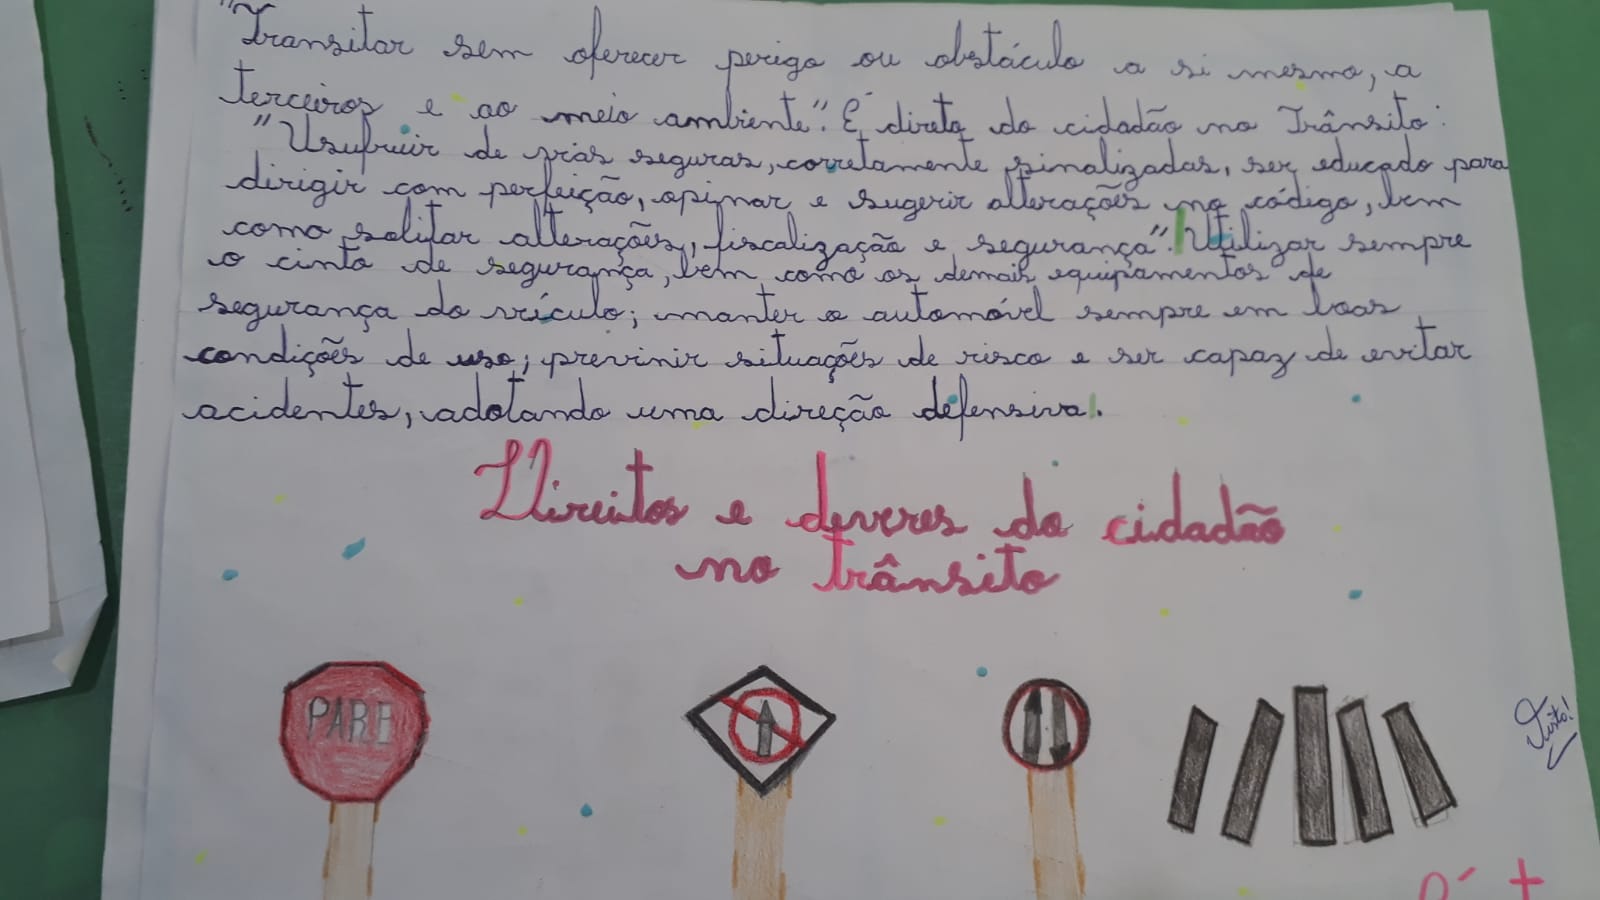 "Transitar sem oferecer perigo ou obstáculo a si mesmo, a
terceiros e ao meio ambiente". É direto do cidadão no Trânsito:
"Usufruir de vias seguras, corretamente sinalizadas, ser educado para
dirigir com perfeição, opinar e sugerir alterações no código, bem
como solitar alterações, fiscalização e segurança". Utilizar sempre
o cinto de segurança, bem como os demais equipamentos de
segurança do veículo; manter o automóvel sempre em boas
condições de uso; previnir situações de risco e ser capaz de evitar
acidentes, adotando uma direção defensiva.
Direitos e deveres do cidadão
no trânsito
PARE
Visto!